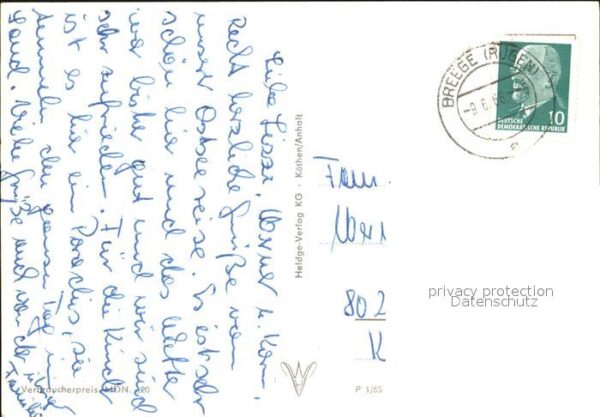 Liebe Lissa, Werner u. Korn.
Recht herzliche Grüße von
unserer Ostseereise. Es ist sehr
schön hier und das Wetter
war bisher gut und wir sind
sehr zufrieden. Für die Kinder
ist es hier ein Paradies, sie
sammeln den ganzen Tag im
Sand. Viele Grüße und von
Heldge-Verlag KG · Köthen/Anhalt
Verbraucherpreis MDN 20
P 1/65
BREEGE (RÜGEN)
-9.6.66
a
10
DEUTSCHE
DEMOKRATISCHE REPUBLIK
Fam.
802
K
privacy protection
Datenschutz